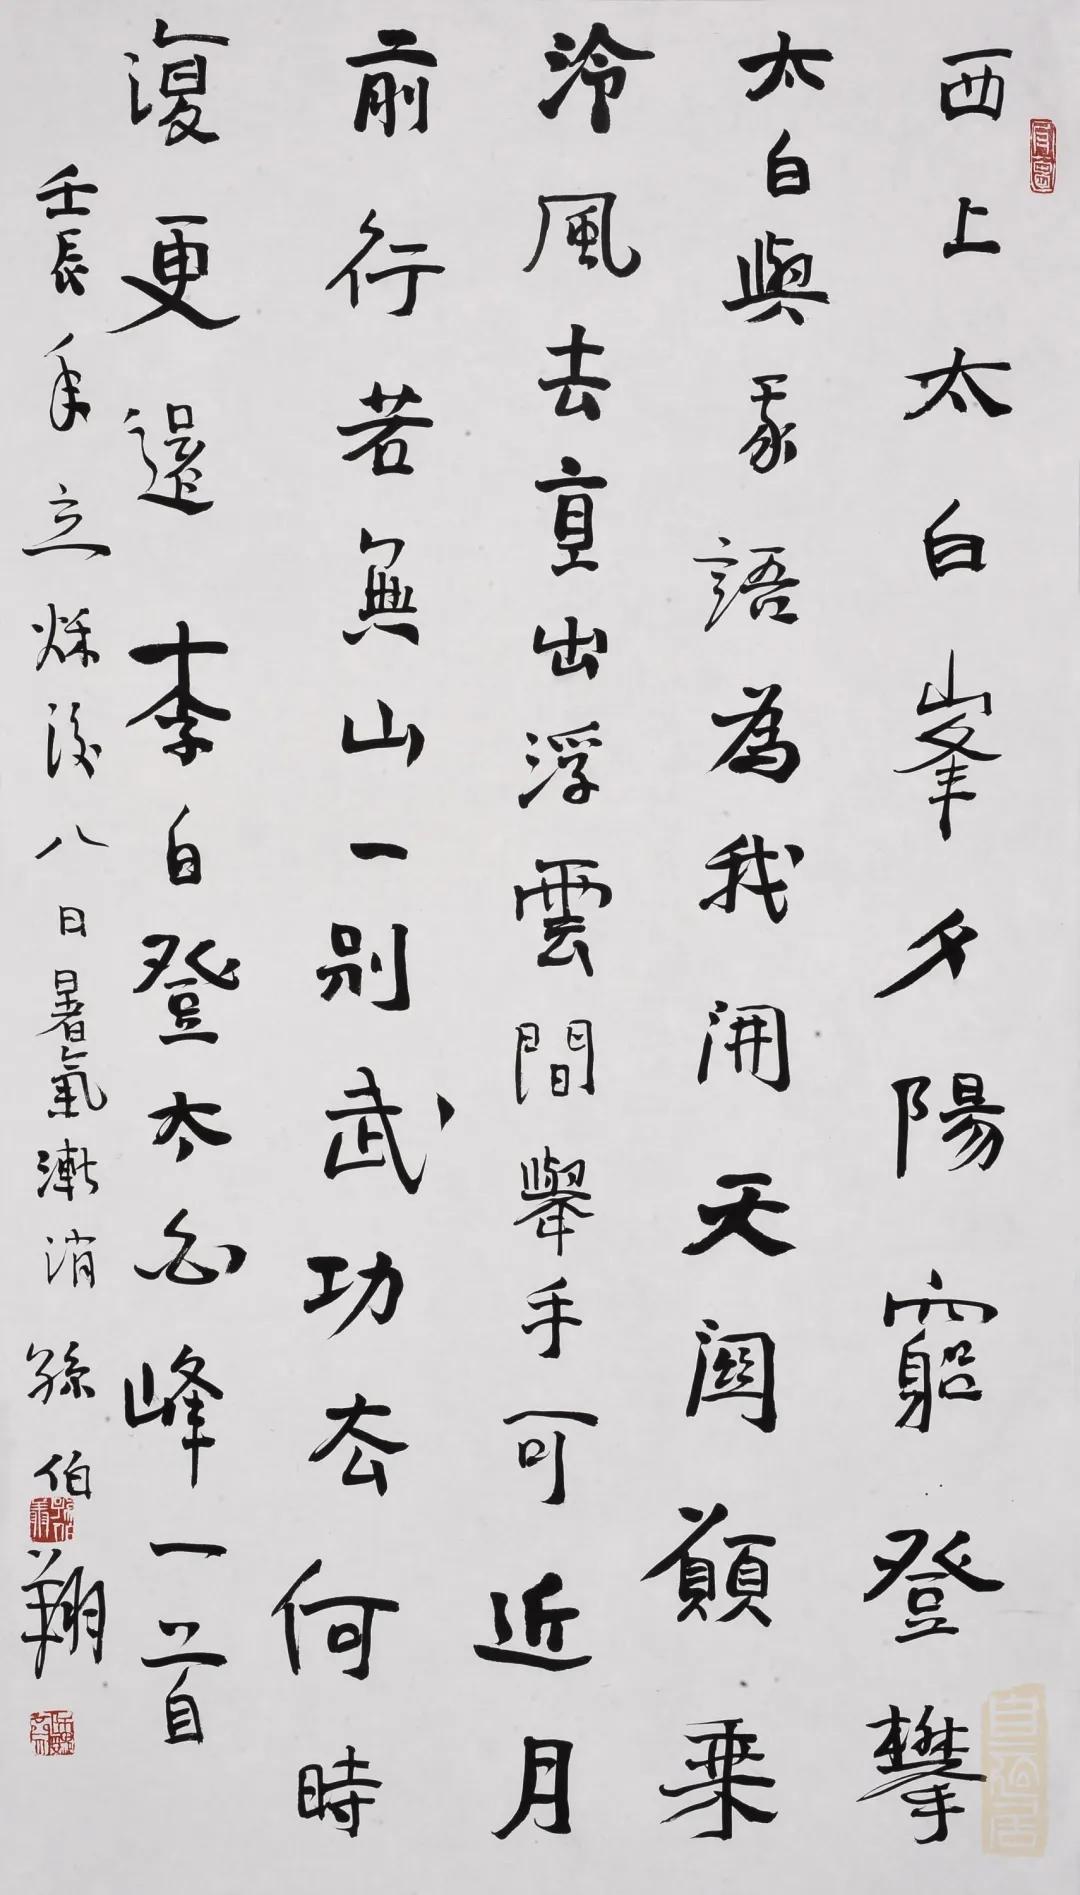 西上太白峯夕陽窮登攀
太白與我語為我開天關願乘
泠風去直出浮雲間舉手可近月
前行若無山一別武功去何時
復更還 李白登太白峰一首
壬辰年立秌後八日暑氣漸消孫伯翔